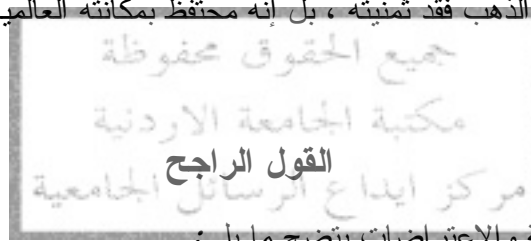 الذهب فقد ثمنيته ، بل إنه محتفظ بمكانته العالمي
جميع الحقوق محفوظة
مكتبة الجامعة الاردنية
القول الراجح
مركز ايداع الرسائل الجامعية
والاعتراضات يتضح ما يلي :